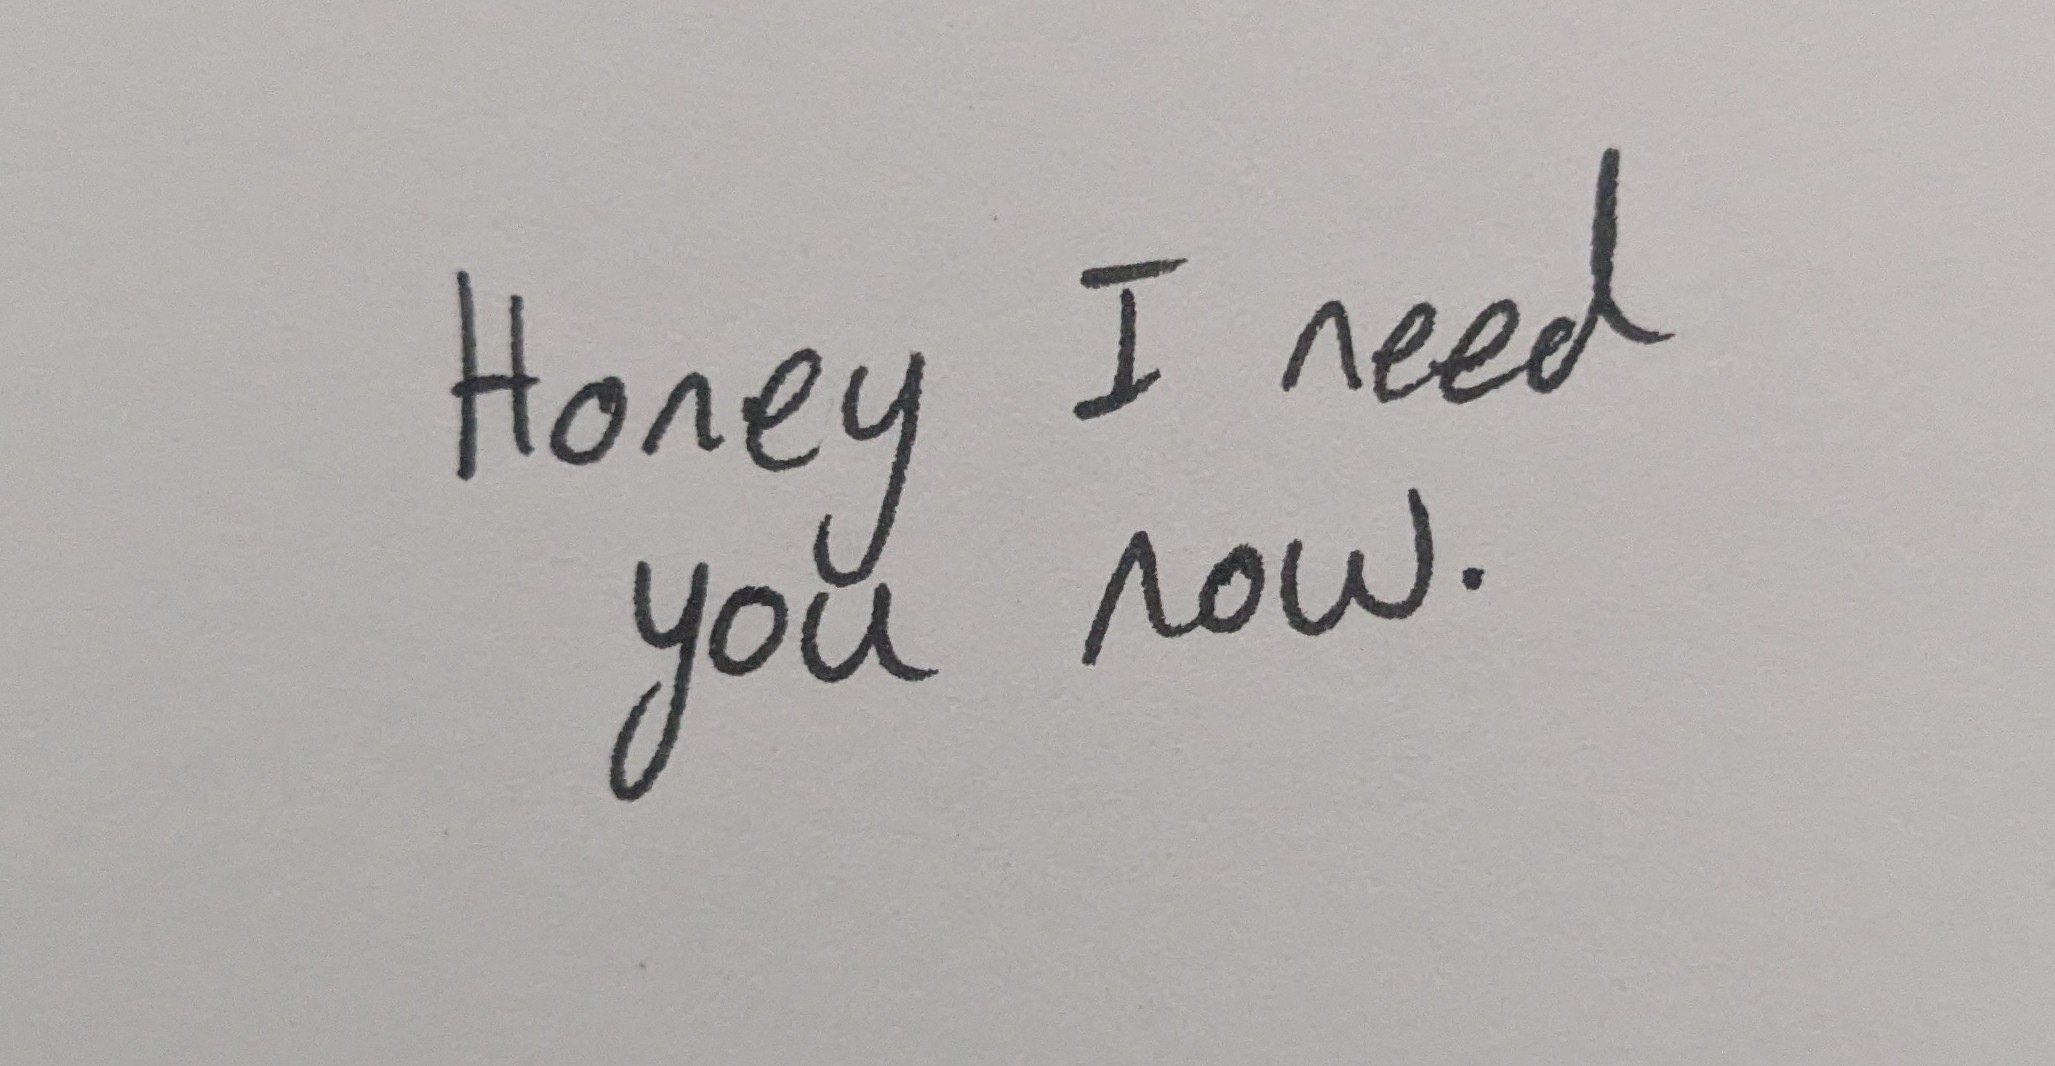 Honey I need
you now.